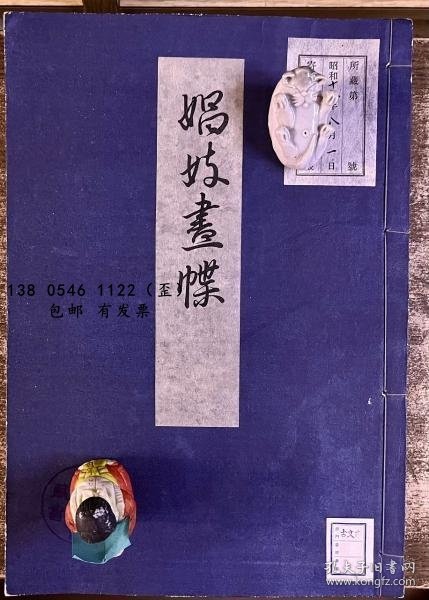 娼妓畫牒
所藏第 號
昭和十 年八月一日
寄
138 0546 1122（歪）
包邮 有发票
古文
孔夫子旧书网
www.kongfz.com